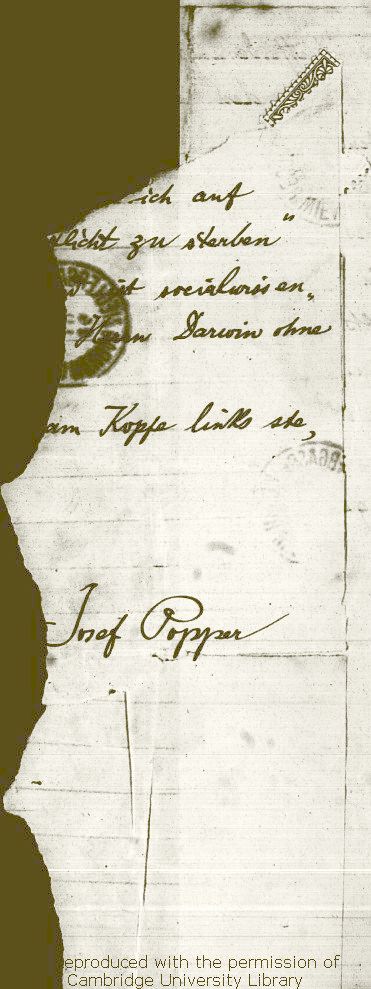 ich auf
flicht zu sterben"
ist socialwissen„
Herrn Darwin ohne
am Kopfe links ste„
Josef Popper
eproduced with the permission of
Cambridge University Library